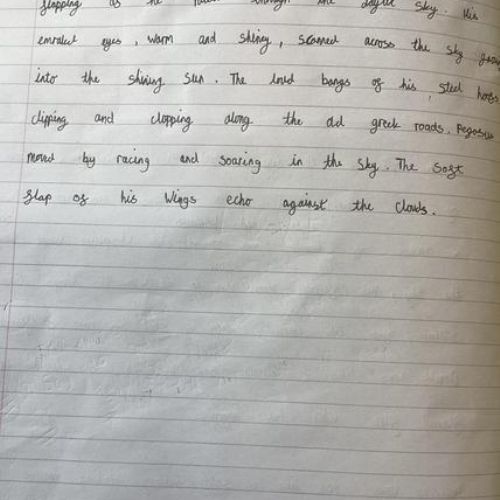 flapping as he through the sky. His
emraled eyes, warm and shiney, scanned across the sky
into the shining sun. The loud bangs of his steel hoofs
clipping and clopping along the old greek roads. Pegasus
moved by racing and soaring in the sky. The soft
flap of his wings echo against the clouds.